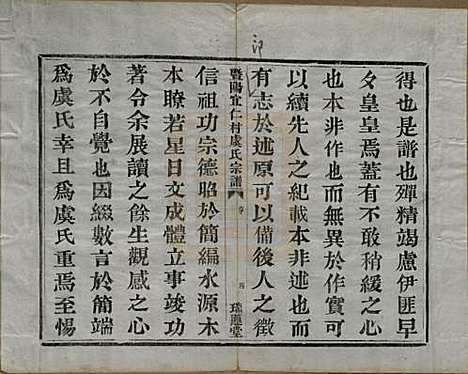 得也是譜也殫精竭慮伊匪早
夕皇皇焉蓋有不敢稍緩之心
也本非作也而無異於作實可
以續先人之紀載本非述也而
有志於述原可以備後人之徵
暨陽宜仁村虞氏宗譜
序
四
瑞趙堂
信祖功宗德昭於簡編水源木
本瞭若星日文成體立事竣功
著令余展讀之餘生觀感之心
於不自覺也因綴數言于簡端
爲虞氏幸且爲虞氏重焉至惕